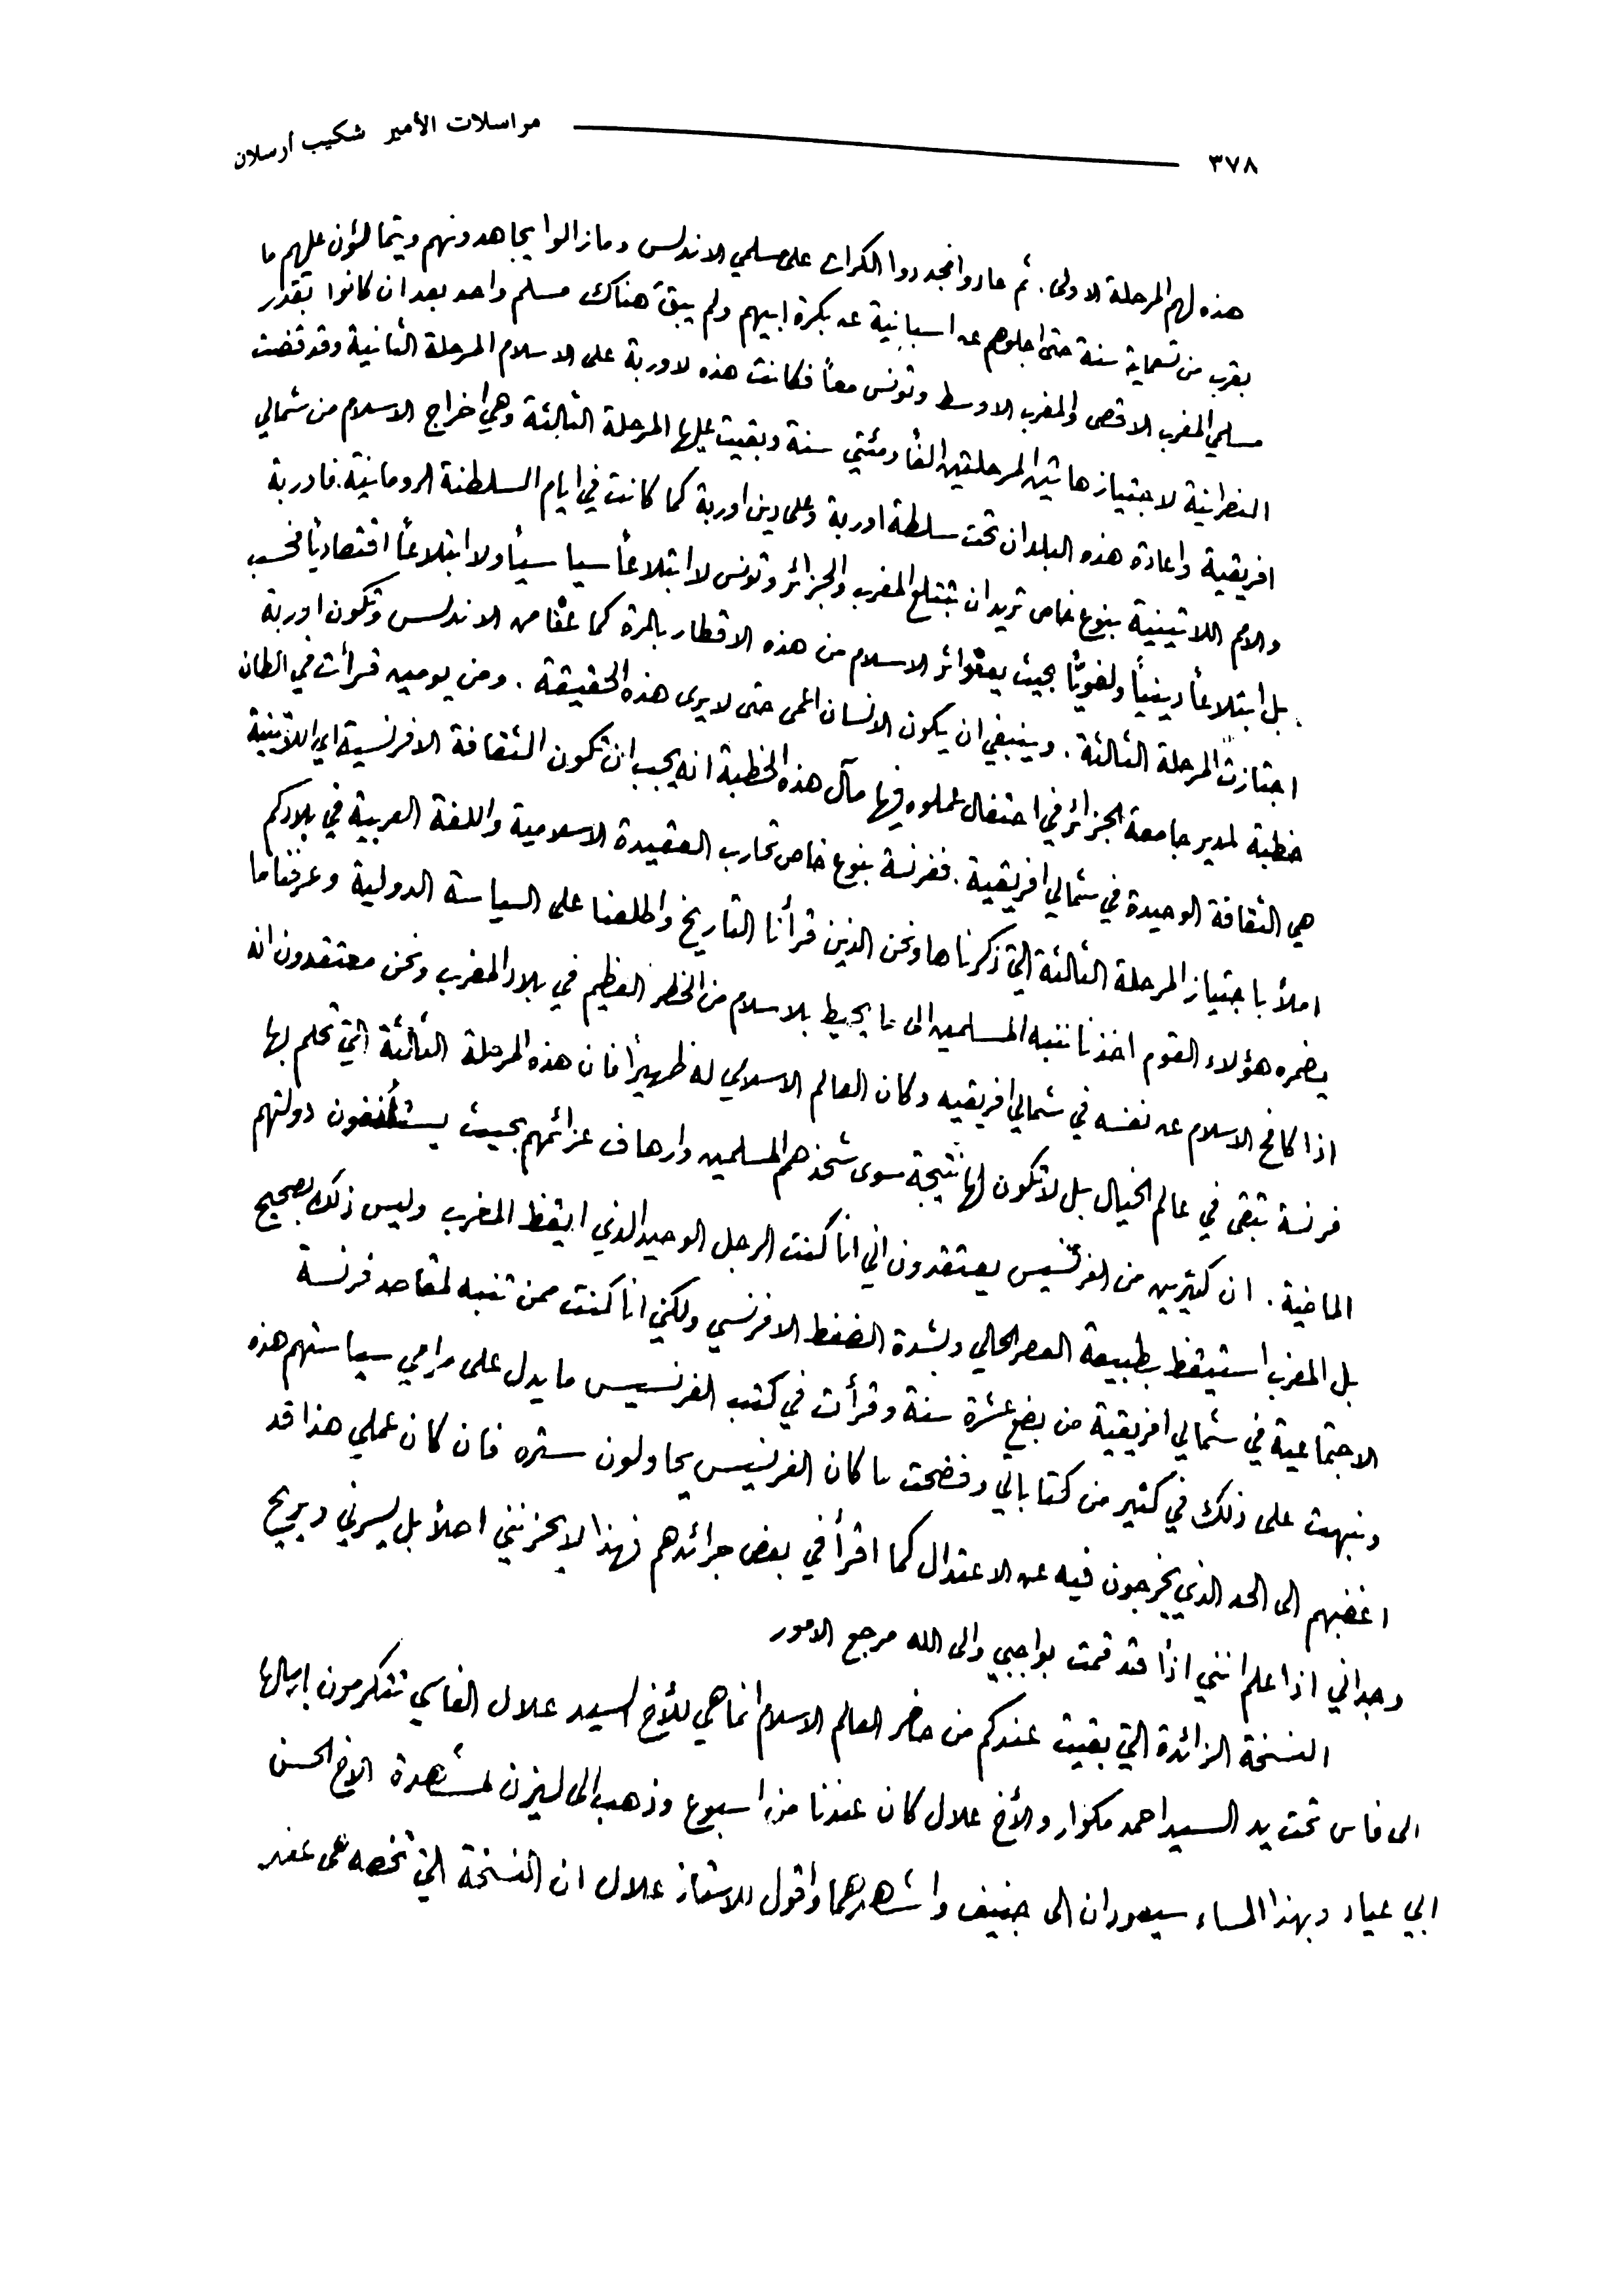 ٣٧٨ مراسلات الأمير شكيب أرسلان
هذه لهم المرحلة الاولى. ثم عادوا فجددوا الكرات على مسلمي الاندلس ومازالوا يجاهدونهم ويتمالئون عليهم ما
يقرب من تسعماية سنة حتى اجلوهم عن اسبانية عن بكرة ابيهم ولم يبقَ هناك مسلم واحد بعد ان كانوا بقدر
مسلمي المغرب الاقصى والمغرب الاوسط وتونس معاً فكانت هذه لاوربة على الاسلام المرحلة الثانية وقد قضت
النصرانية لاجتياز هاتين المرحلتين الفاً ومئتي سنة وبقيت عليها المرحلة الثالثة وهي اخراج الاسلام من شمالي
افريقية واعادة هذه البلدان تحت سلطة اوربة وعلى دين اوربة كما كانت في ايام السلطنة الرومانية. فاوربة
والامم اللاتينية بنوع خاص تريد ان تبتلع المغرب والجزائر وتونس لا ابتلاعاً سياسياً ولا ابتلاعاً اقتصادياً فحسب
بل ابتلاعاً دينياً ولغويًّا بحيث يعفو اثر الاسلام من هذه الاقطار بالمرة كما عفا من الاندلس وتكون اوربة
اجتازت المرحلة الثالثة. وينبغي ان يكون الانسان اعمى حتى لا يرى هذه الحقيقة. ومن يومين قرأت في الطان
خطبة لمدير جامعة الجزائر في احتفال عملوه فيها مآل هذه الخطبة انه يجب ان تكون الثقافة الافرنسية اي اللاتينية
هي الثقافة الوحيدة في شمالي افريقية. ففرنسة بنوع خاص تحارب العقيدة الاسلامية واللغة العربية في بلادكم
املاً باجتياز المرحلة الثالثة التي ذكرناها ونحن الذين قرأنا التاريخ واطلعنا على السياسة الدولية وعرفنا ما
يضمره هؤلاء القوم اخذنا ننبه المسلمين الى ما يحيط بالاسلام من الخطر العظيم في بلاد المغرب ونحن معتقدون انه
اذا كافح الاسلام عن نفسه في شمالي افريقيه وكان العالم الاسلامي له ظهيراً فان هذه المرحلة الثالثة التي تحلم بها
فرنسة تبقى في عالم الخيال بل لا تكون لها نتيجة سوى شحذ همم المسلمين وارهاف عزائمهم بحيث يستأنفون دولتهم
الماضية. ان كثيرين من الفرنسيس يعتقدون اني انا كنت الرجل الوحيد الذي ايقظ المغرب وليس ذلك بصحيح
بل المغرب استيقظ بطبيعة العصر الحالي وبشدة الضغط الافرنسي ولكني انا كنت ممن تنبه لمقاصد فرنسة
الاجتماعية في شمالي افريقية من بضع عشرة سنة وقرأت في كتب الفرنسيس ما يدل على مرامي سياستهم هذه
ونبهت على ذلك في كثير من كتاباتي وفضحت ما كان الفرنسيس يحاولون ستره فان كان عملي هذا قد
اغضبهم الى الحد الذي يخرجون فيه عن الاعتدال كما اقرأ في بعض جرائدهم فهذا لا يحزنني اصلاً بل يسرني ويريح
وجداني اذا علم انني اذاً قد قمت بواجبي والى الله مرجع الامور
النسخة الزائدة التي بقيت عندكم من حاضر العالم الاسلام انما هي للأخ السيد علال الفاسي تتكرمون بارسالها
الى فاس تحت يد السيد احمد مكوار والأخ علال كان عندنا من اسبوع وذهب الى ليزن لمشاهدة الاخ الحسن
ابي عياد وبهذا المساء سيعودان الى جنيف واشاهدهما واقول للاستاذ علال ان النسخة التي تخصه هي عند